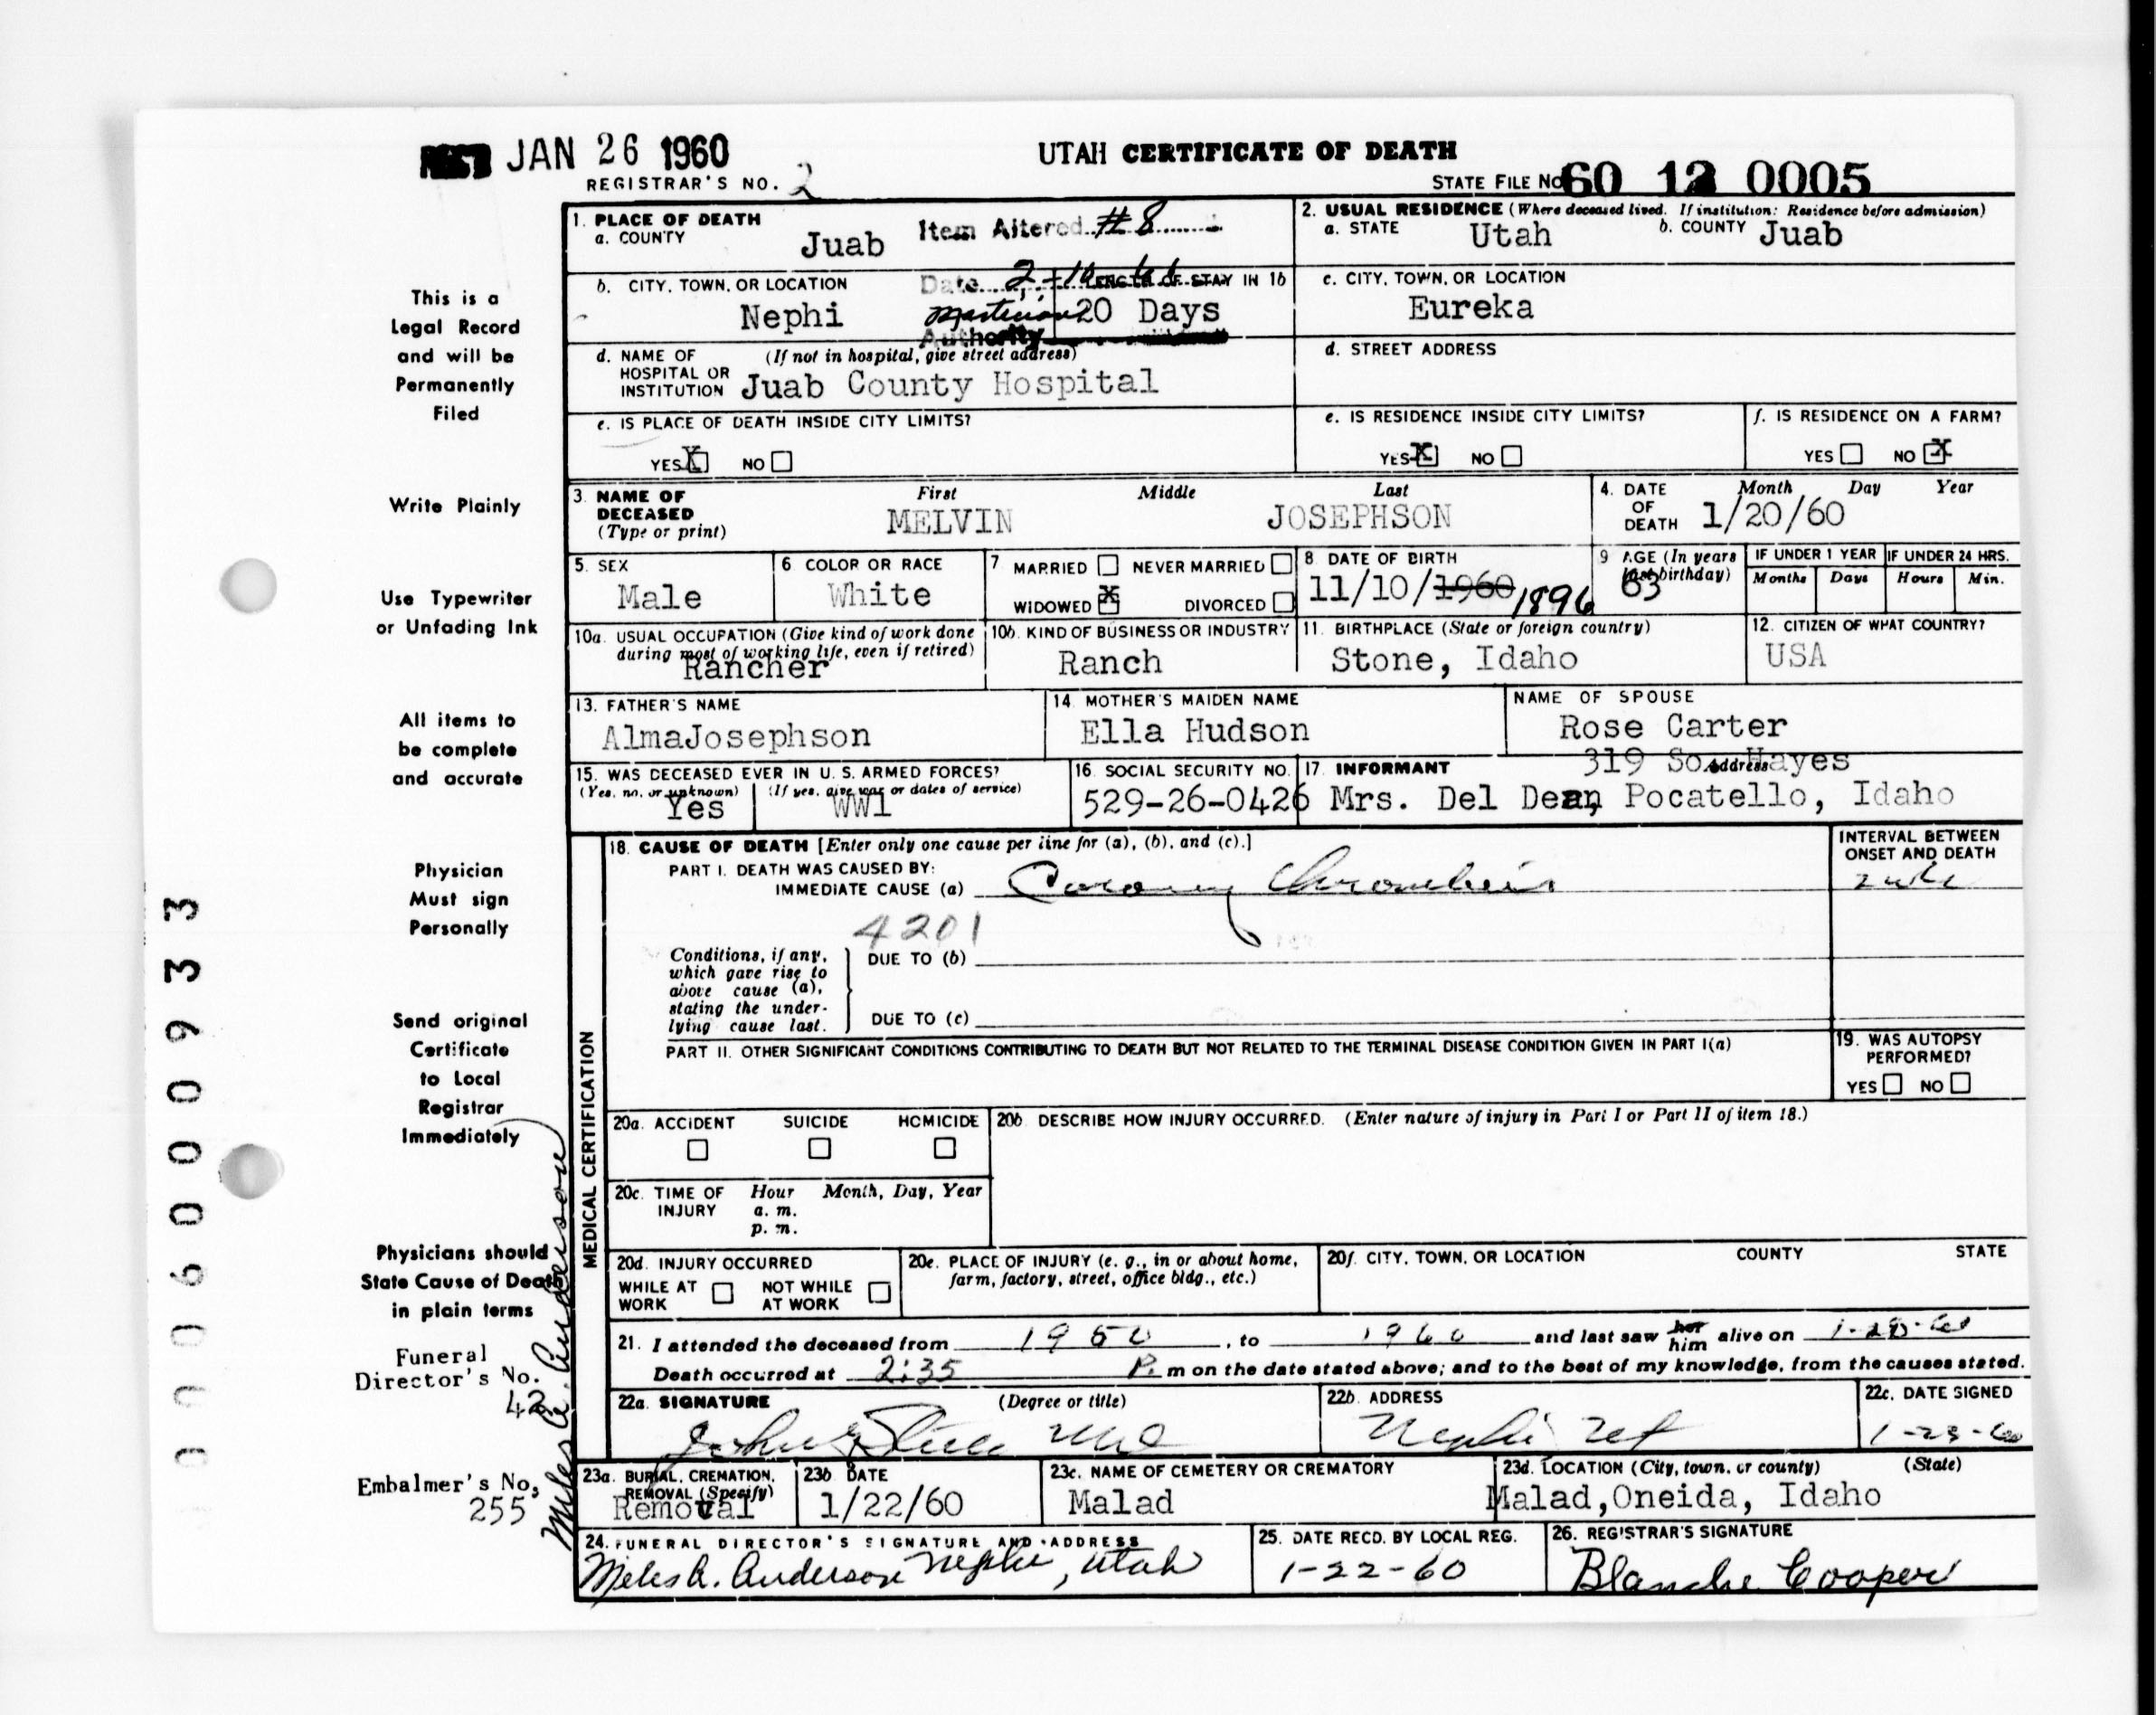 JAN 26 1960
UTAH CERTIFICATE OF DEATH
REGISTRAR'S NO. 2
STATE FILE No. 60 12 0005
This is a
Legal Record
and will be
Permanently
Filed
Write Plainly
Use Typewriter
or Unfading Ink
All items to
be complete
and accurate
Physician
Must sign
Personally
Send original
Certificate
to Local
Registrar
Immediately
Physicians should
State Cause of Death
in plain terms
Funeral
Director's No.
42
Embalmer's No,
255
Miles A. Anderson
0006000933
1. PLACE OF DEATH
a. COUNTY
Juab
Item Altered #8
2. USUAL RESIDENCE (Where deceased lived. If institution: Residence before admission)
a. STATE Utah b. COUNTY Juab
b. CITY, TOWN, OR LOCATION
Nephi
Date
Authority
LENGTH OF STAY IN 1b
20 Days
c. CITY, TOWN, OR LOCATION
Eureka
d. NAME OF (If not in hospital, give street address)
HOSPITAL OR
INSTITUTION Juab County Hospital
d. STREET ADDRESS
e. IS PLACE OF DEATH INSIDE CITY LIMITS?
YES X NO
e. IS RESIDENCE INSIDE CITY LIMITS?
YES X NO
f. IS RESIDENCE ON A FARM?
YES NO X
3. NAME OF
DECEASED
(Type or print)
First Middle Last
MELVIN JOSEPHSON
4. DATE
OF
DEATH
Month Day Year
1/20/60
5. SEX
Male
6 COLOR OR RACE
White
7 MARRIED NEVER MARRIED
WIDOWED X DIVORCED
8 DATE OF BIRTH
11/10/1960 1896
9 AGE (In years
last birthday)
63
IF UNDER 1 YEAR
Months Days
IF UNDER 24 HRS.
Hours Min.
10a. USUAL OCCUPATION (Give kind of work done
during most of working life, even if retired)
Rancher
10b. KIND OF BUSINESS OR INDUSTRY
Ranch
11. BIRTHPLACE (State or foreign country)
Stone, Idaho
12. CITIZEN OF WHAT COUNTRY?
USA
13. FATHER'S NAME
AlmaJosephson
14. MOTHER'S MAIDEN NAME
Ella Hudson
NAME OF SPOUSE
Rose Carter
15. WAS DECEASED EVER IN U. S. ARMED FORCES?
(Yes, no, or unknown) (If yes, give war or dates of service)
Yes WW1
16. SOCIAL SECURITY NO.
529-26-0426
17. INFORMANT Address
319 So. Hayes
Mrs. Del Dean, Pocatello, Idaho
MEDICAL CERTIFICATION
18. CAUSE OF DEATH [Enter only one cause per line for (a), (b), and (c).]
PART I. DEATH WAS CAUSED BY:
IMMEDIATE CAUSE (a) Coronary Thrombosis
4201
Conditions, if any,
which gave rise to
above cause (a),
stating the under-
lying cause last.
DUE TO (b)
DUE TO (c)
INTERVAL BETWEEN
ONSET AND DEATH
PART II. OTHER SIGNIFICANT CONDITIONS CONTRIBUTING TO DEATH BUT NOT RELATED TO THE TERMINAL DISEASE CONDITION GIVEN IN PART I(a)
19. WAS AUTOPSY
PERFORMED?
YES NO
20a. ACCIDENT SUICIDE HOMICIDE
20b. DESCRIBE HOW INJURY OCCURRED. (Enter nature of injury in Part I or Part II of item 18.)
20c. TIME OF Hour Month, Day, Year
INJURY a. m.
p. m.
20d. INJURY OCCURRED
WHILE AT NOT WHILE
WORK AT WORK
20e. PLACE OF INJURY (e. g., in or about home,
farm, factory, street, office bldg., etc.)
20f. CITY, TOWN, OR LOCATION COUNTY STATE
21. I attended the deceased from 1950, to 1960 and last saw her him alive on 1-20-60
Death occurred at 2:35 P. m on the date stated above; and to the best of my knowledge, from the causes stated.
22a. SIGNATURE (Degree or title)
22b. ADDRESS
Nephi Ut
22c. DATE SIGNED
1-23-60
23a. BURIAL, CREMATION,
REMOVAL (Specify)
Removal
23b. DATE
1/22/60
23c. NAME OF CEMETERY OR CREMATORY
Malad
23d. LOCATION (City, town, or county) (State)
Malad,Oneida, Idaho
24. FUNERAL DIRECTOR'S SIGNATURE AND ADDRESS
Miles A. Anderson Nephi, Utah
25. DATE RECD. BY LOCAL REG.
1-22-60
26. REGISTRAR'S SIGNATURE
Blanche Cooper